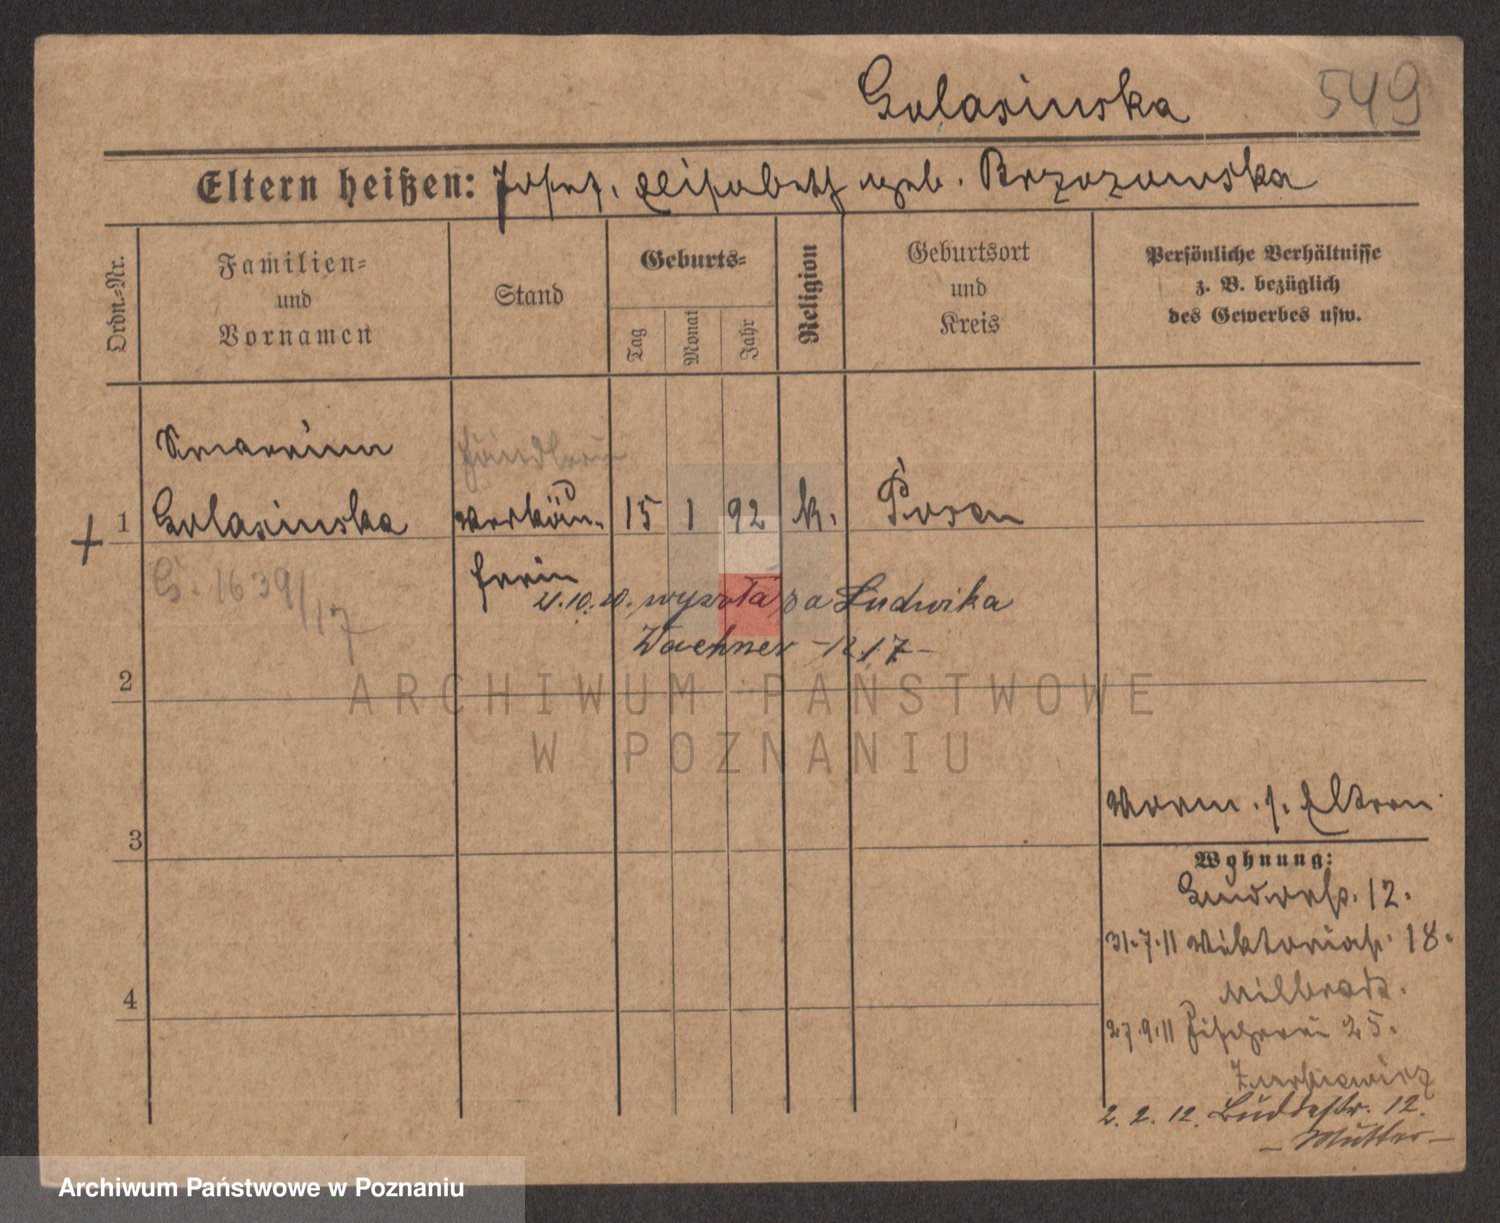 Golasinska 549
Eltern heißen: Josef. Elisabeth geb. Brzozowska
Ordn.=Nr.
Familien=
und
Vornamen
Stand
Geburts=
Tag
Monat
Jahr
Religion
Geburtsort
und
Kreis
Persönliche Verhältnisse
z. B. bezüglich
des Gewerbes usw.
Händlerin
+ 1 Golasinska Verkäu- 15 1 92 k. Posen
ferin
G. 1639/17
21.10.20. wyszła za Ludwika
Waehner -1217-
2
ARCHIWUM PAŃSTWOWE
W POZNANIU
3
4
Vorm. s. Eltern
Wohnung:
12.
31.7.11 Viktoriastr. 18.
Milbradt.
27.9.11 Fischerei 25.
2.2.12. Buddestr. 12.
- Mutter -
Archiwum Państwowe w Poznaniu